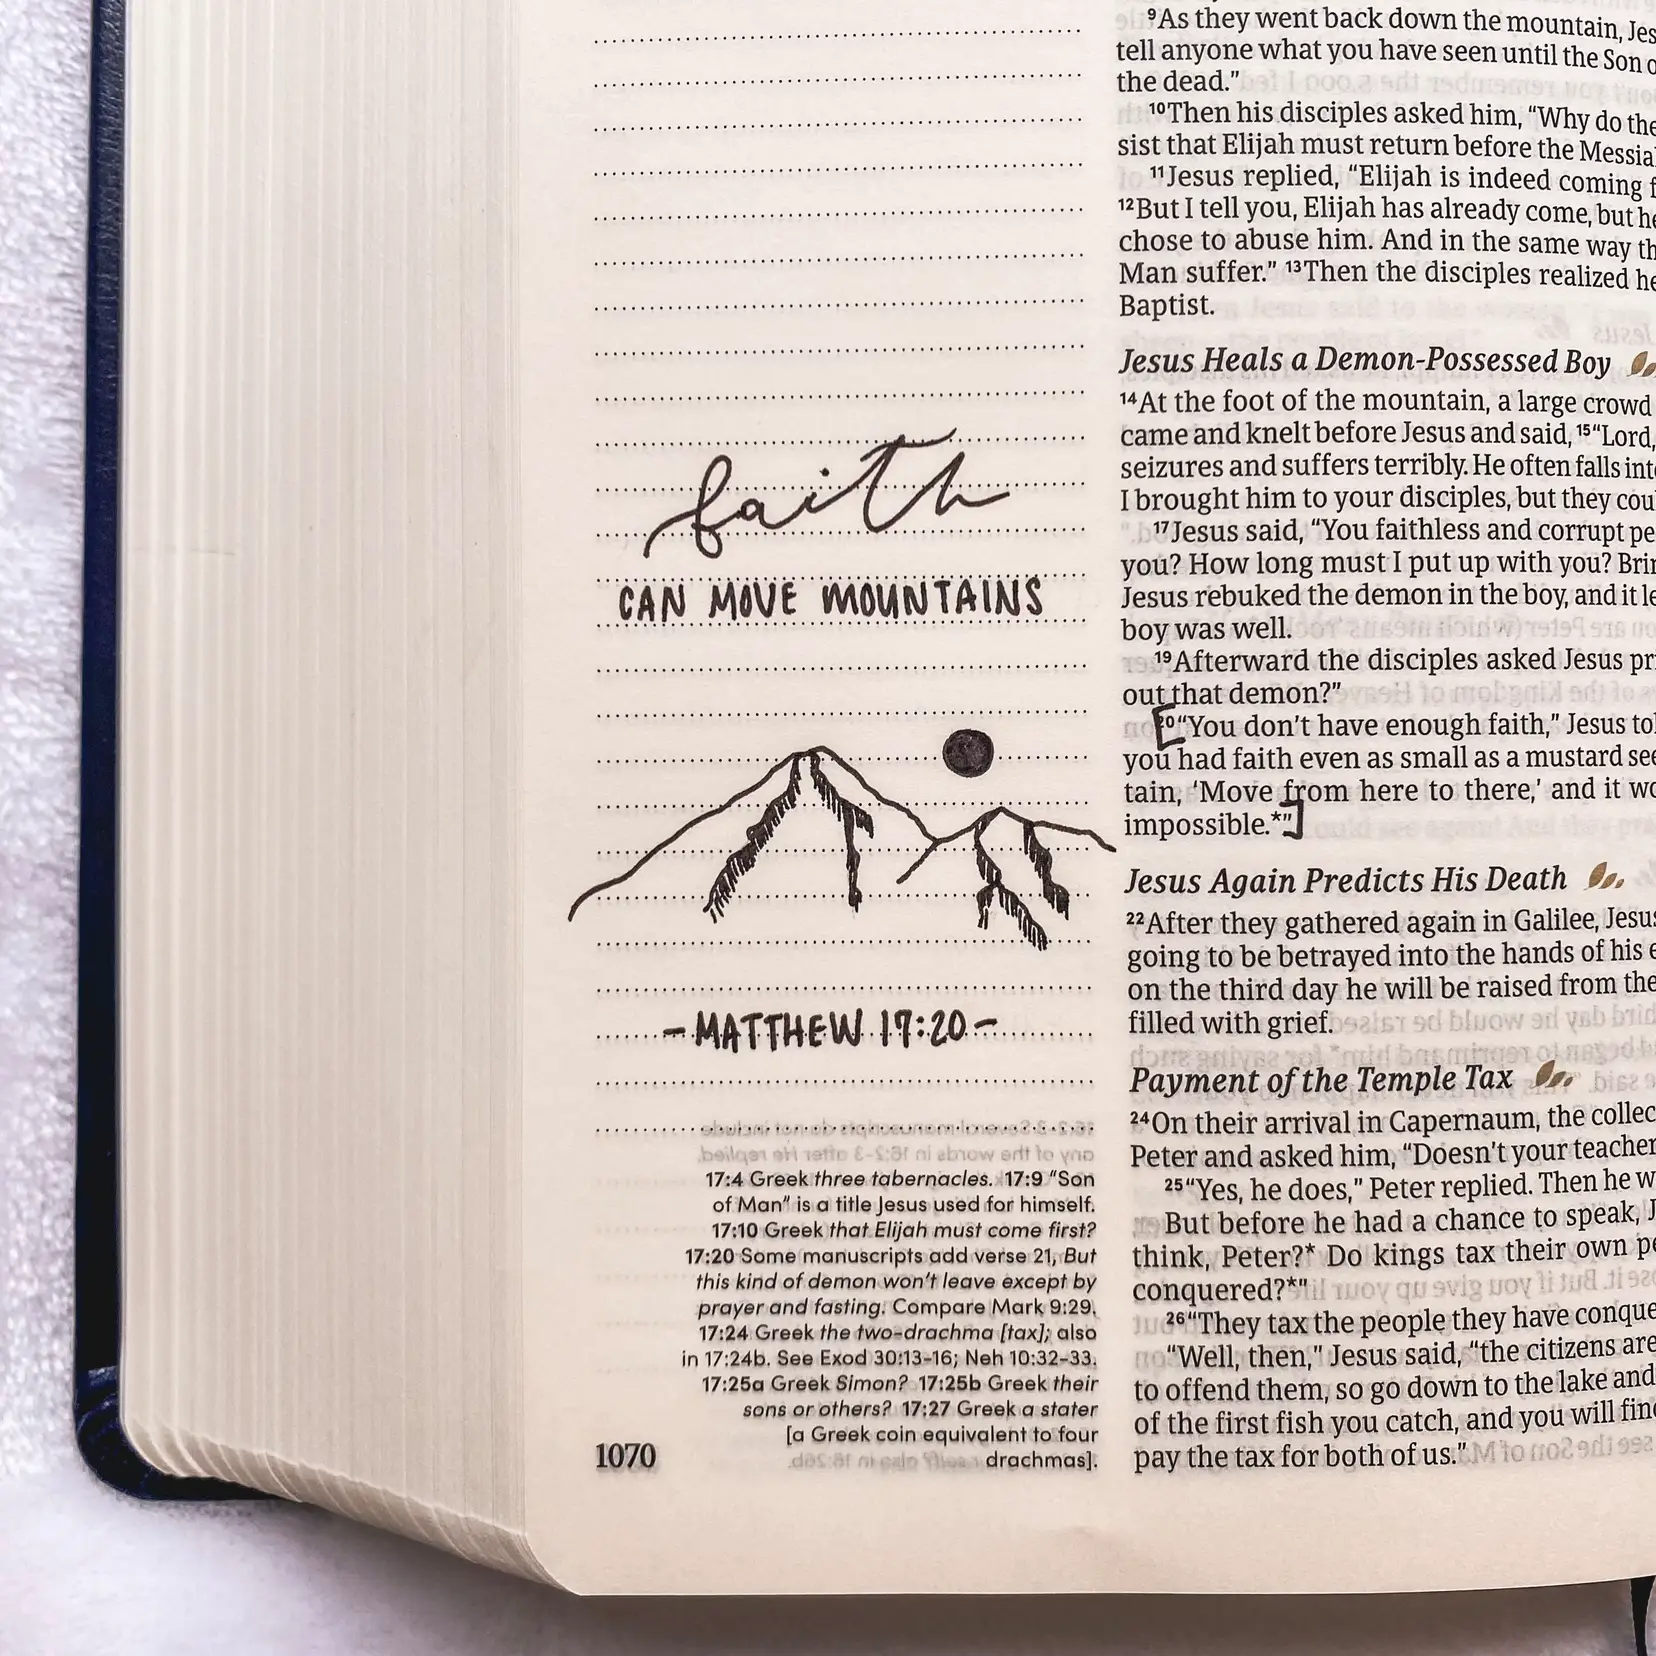 faith
CAN MOVE MOUNTAINS
- MATTHEW 17:20 -
17:4 Greek three tabernacles. 17:9 “Son
of Man” is a title Jesus used for himself.
17:10 Greek that Elijah must come first?
17:20 Some manuscripts add verse 21, But
this kind of demon won’t leave except by
prayer and fasting. Compare Mark 9:29.
17:24 Greek the two-drachma [tax]; also
in 17:24b. See Exod 30:13-16; Neh 10:32-33.
17:25a Greek Simon? 17:25b Greek their
sons or others? 17:27 Greek a stater
[a Greek coin equivalent to four
drachmas].
1070
9As they went back down the mountain, Jes
tell anyone what you have seen until the Son o
the dead.”
10Then his disciples asked him, “Why do the
sist that Elijah must return before the Messia
11Jesus replied, “Elijah is indeed coming f
12But I tell you, Elijah has already come, but he
chose to abuse him. And in the same way th
Man suffer.” 13Then the disciples realized he
Baptist.
Jesus Heals a Demon-Possessed Boy
14At the foot of the mountain, a large crowd
came and knelt before Jesus and said, 15“Lord,
seizures and suffers terribly. He often falls int
I brought him to your disciples, but they cou
17Jesus said, “You faithless and corrupt pe
you? How long must I put up with you? Brin
Jesus rebuked the demon in the boy, and it le
boy was well.
19Afterward the disciples asked Jesus pr
out that demon?”
[20“You don’t have enough faith,” Jesus tol
you had faith even as small as a mustard see
tain, ‘Move from here to there,’ and it wo
impossible.*”]
Jesus Again Predicts His Death
22After they gathered again in Galilee, Jesus
going to be betrayed into the hands of his e
on the third day he will be raised from the
filled with grief.
Payment of the Temple Tax
24On their arrival in Capernaum, the collec
Peter and asked him, “Doesn’t your teacher
25“Yes, he does,” Peter replied. Then he w
But before he had a chance to speak, J
think, Peter?* Do kings tax their own pe
conquered?*”
26“They tax the people they have conque
“Well, then,” Jesus said, “the citizens are
to offend them, so go down to the lake and
of the first fish you catch, and you will find
pay the tax for both of us.”